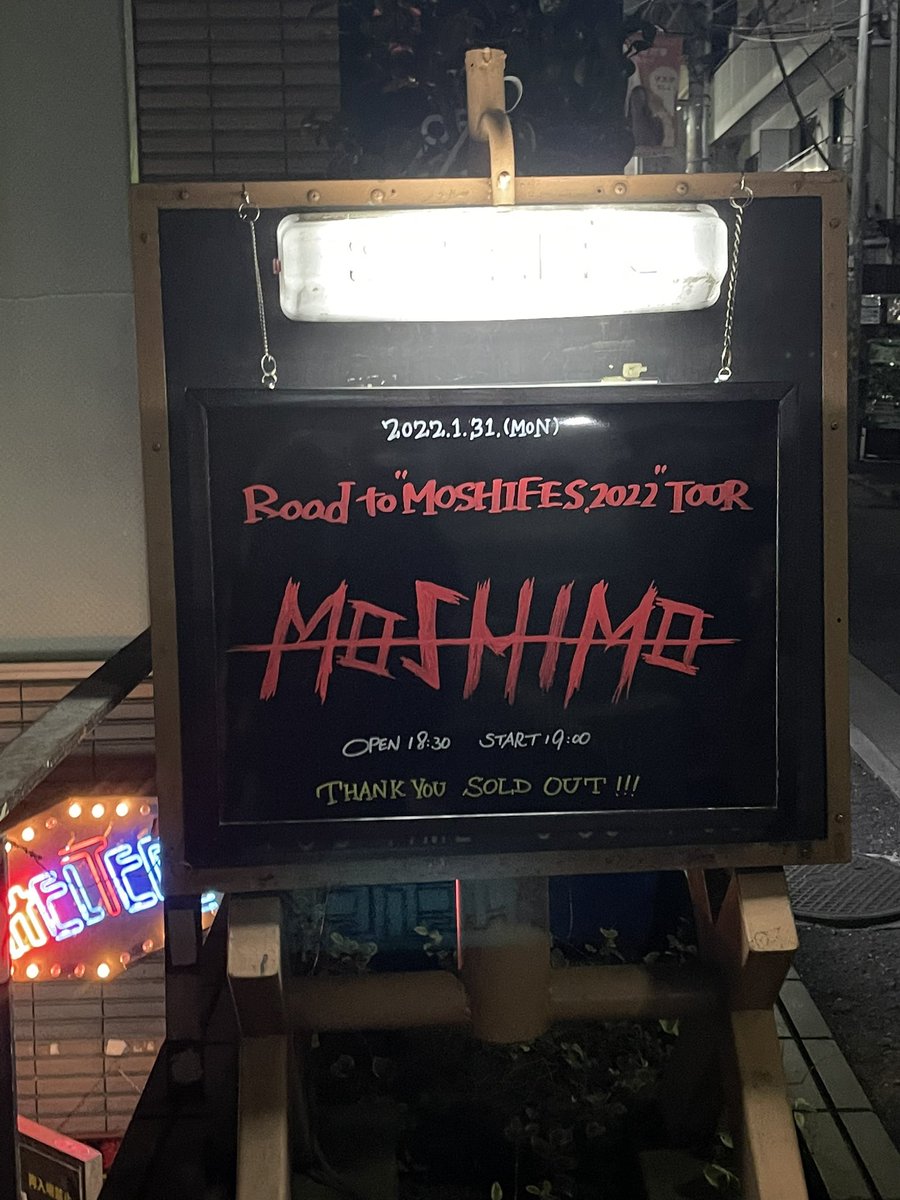 2022.1.31.(MON)
Road to "MOSHIFES.2022" TOUR
MOSHIMO
OPEN 18:30 START 19:00
THANK YOU SOLD OUT!!!